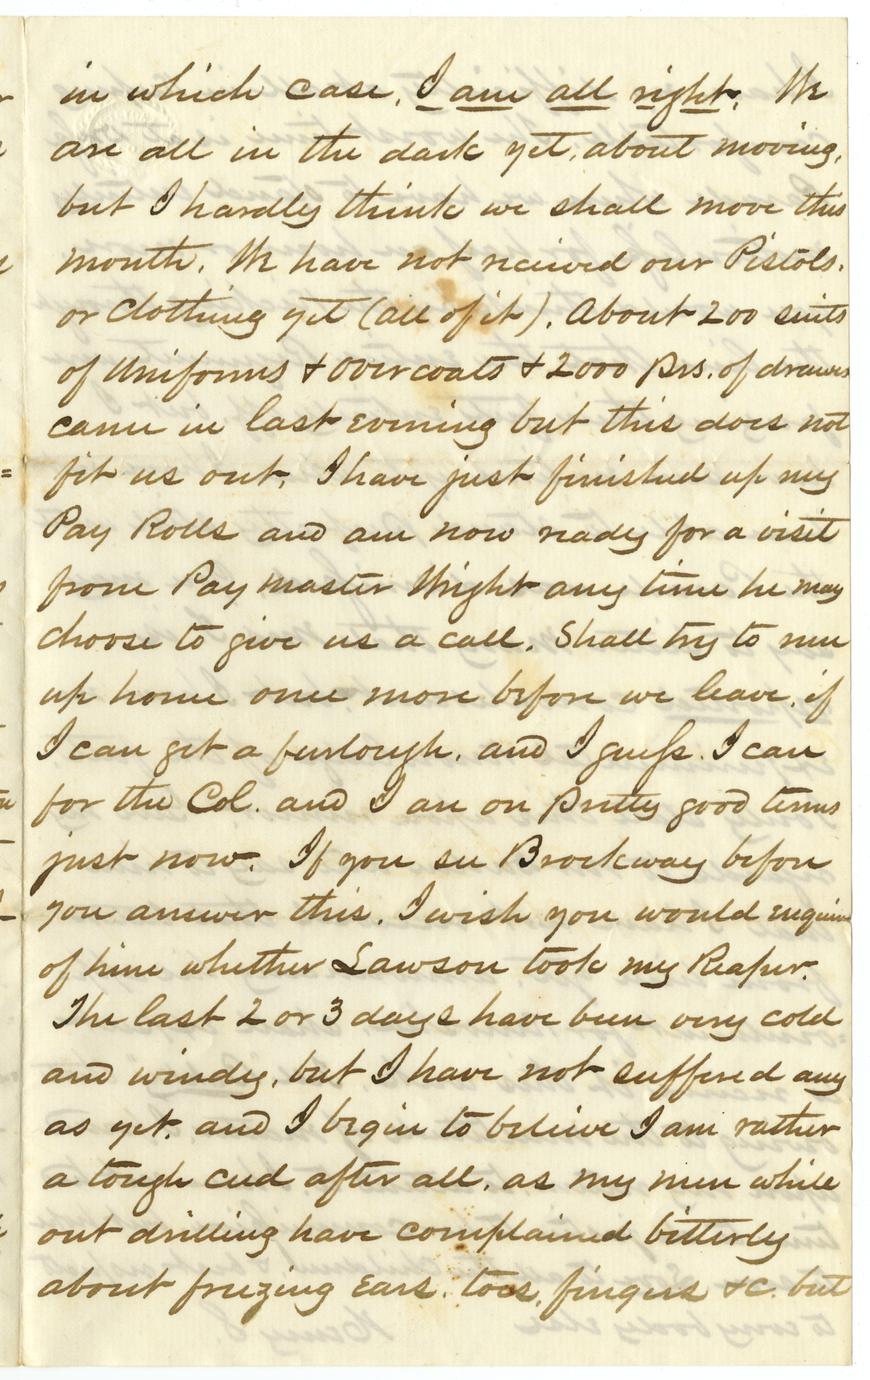 in which case, I am all right. We
are all in the dark yet, about moving,
but I hardly think we shall move this
month. We have not recieved our Pistols.
or Clothing yet (all of it). About 200 suits
of Uniforms & Overcoats & 2000 Prs. of drawers
came in last evening but this does not
fit us out. I have just finished up my
Pay Rolls and am now ready for a visit
from Pay master Wright any time he may
choose to give us a call. Shall try to run
up home once more before we leave, if
I can get a furlough, and I guess I can
for the Col. and I are on pretty good terms
just now. If you see Brockway before
you answer this, I wish you would enquire
of him whether Lawson took my Reaper.
The last 2 or 3 days have been very cold
and windy, but I have not suffered any
as yet. and I begin to believe I am rather
a tough cud after all, as my men while
out drilling have complained bitterly
about freezing Ears. toes, fingers &c. but